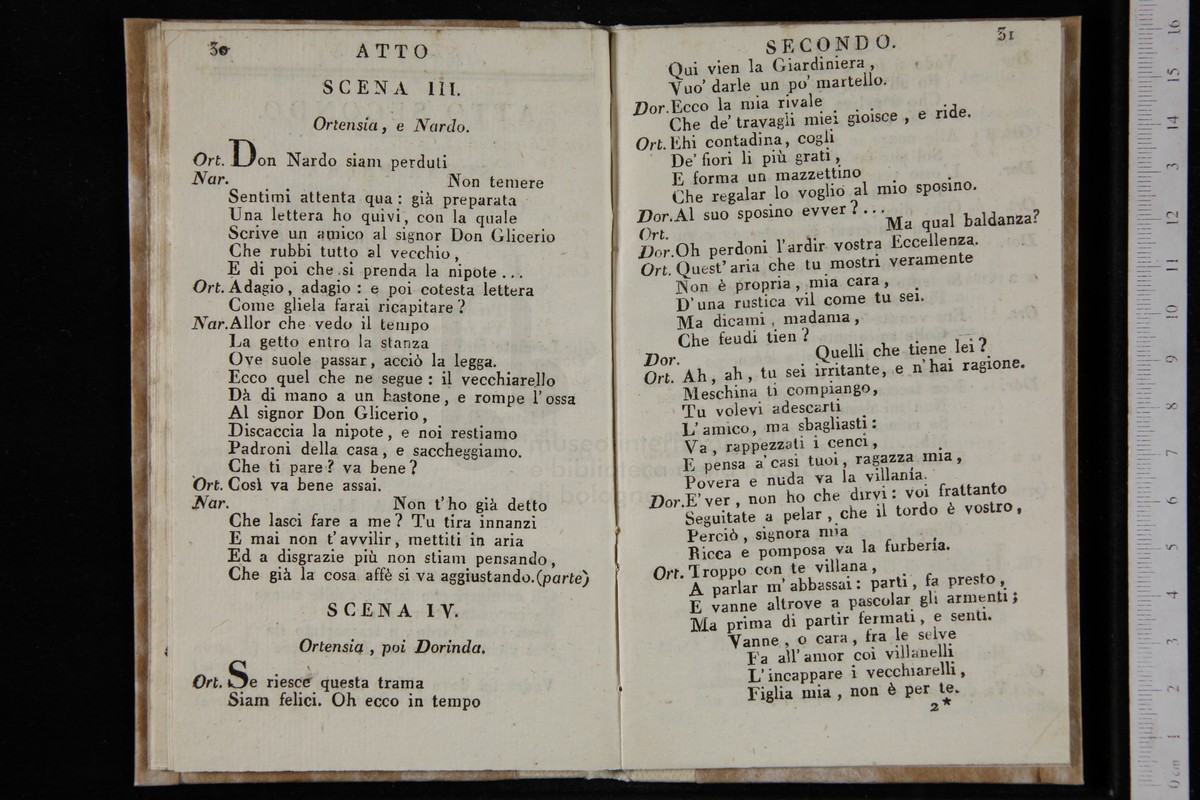 30
ATTO
SCENA III.
Ortensia, e Nardo.
Ort. Don Nardo siam perduti
Nar. Non temere
Sentimi attenta qua: già preparata
Una lettera ho quivi, con la quale
Scrive un amico al signor Don Glicerio
Che rubbi tutto al vecchio,
E di poi che si prenda la nipote...
Ort. Adagio, adagio: e poi cotesta lettera
Come gliela farai ricapitare?
Nar. Allor che vedo il tempo
La getto entro la stanza
Ove suole passar, acciò la legga.
Ecco quel che ne segue: il vecchiarello
Dà di mano a un bastone, e rompe l'ossa
Al signor Don Glicerio,
Discaccia la nipote, e noi restiamo
Padroni della casa, e saccheggiamo.
Che ti pare? va bene?
Ort. Così va bene assai.
Nar. Non t'ho già detto
Che lasci fare a me? Tu tira innanzi
E mai non t'avvilir, mettiti in aria
Ed a disgrazie più non stiam pensando,
Che già la cosa affè si va aggiustando. (parte)
SCENA IV.
Ortensia, poi Dorinda.
Ort. Se riesce questa trama
Siam felici. Oh ecco in tempo
SECONDO.
31
Qui vien la Giardiniera,
Vuo' darle un po' martello.
Dor. Ecco la mia rivale
Che de' travagli miei gioisce, e ride.
Ort. Ehi contadina, cogli
De' fiori li più grati,
E forma un mazzettino
Che regalar lo voglio al mio sposino.
Dor. Al suo sposino evver?...
Ort. Ma qual baldanza?
Dor. Oh perdoni l'ardir vostra Eccellenza.
Ort. Quest'aria che tu mostri veramente
Non è propria, mia cara,
D'una rustica vil come tu sei.
Ma dicami, madama,
Che feudi tien?
Dor. Quelli che tiene lei?
Ort. Ah, ah, tu sei irritante, e n'hai ragione.
Meschina ti compiango,
Tu volevi adescarti
L'amico, ma sbagliasti:
Va, rappezzati i cenci,
E pensa a'casi tuoi, ragazza mia,
Povera e nuda va la villanìa.
Dor. E' ver, non ho che dirvi: voi frattanto
Seguitate a pelar, che il tordo è vostro,
Perciò, signora mia
Ricca e pomposa va la furberìa.
Ort. Troppo con te villana,
A parlar m'abbassai: parti, fa presto,
E vanne altrove a pascolar gli armenti;
Ma prima di partir fermati, e senti.
Vanne, o cara, fra le selve
Fa all'amor coi villanelli
L'incappare i vecchiarelli,
Figlia mia, non è per te.
2*